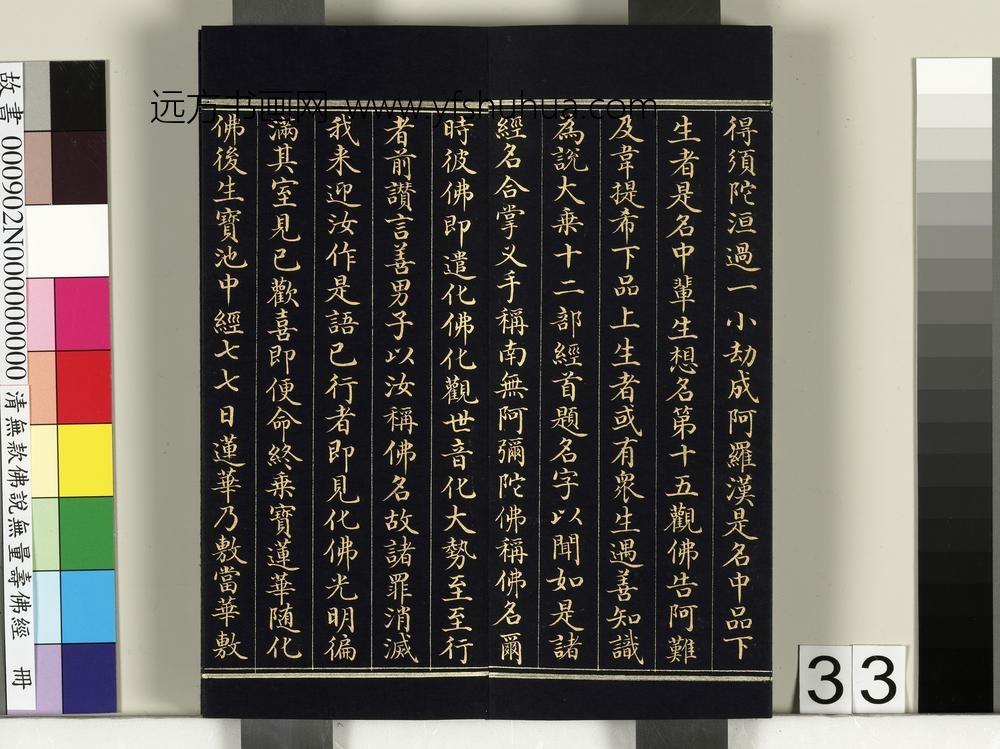 远方书画网 www.yfshuhua.com
得須陀洹過一小劫成阿羅漢是名中品下
生者是名中輩生想名第十五觀佛告阿難
及韋提希下品上生者或有眾生遇善知識
為說大乘十二部經首題名字以聞如是諸
經名合掌叉手稱南無阿彌陀佛稱佛名爾
時彼佛即遣化佛化觀世音化大勢至至行
者前讚言善男子以汝稱佛名故諸罪消滅
我来迎汝作是語已行者即見化佛光明徧
滿其室見已歡喜即便命終乘寶蓮華随化
佛後生寶池中經七七日蓮華乃敷當華敷
故書 000902N000000000
清無款佛說無量壽佛經 冊
33